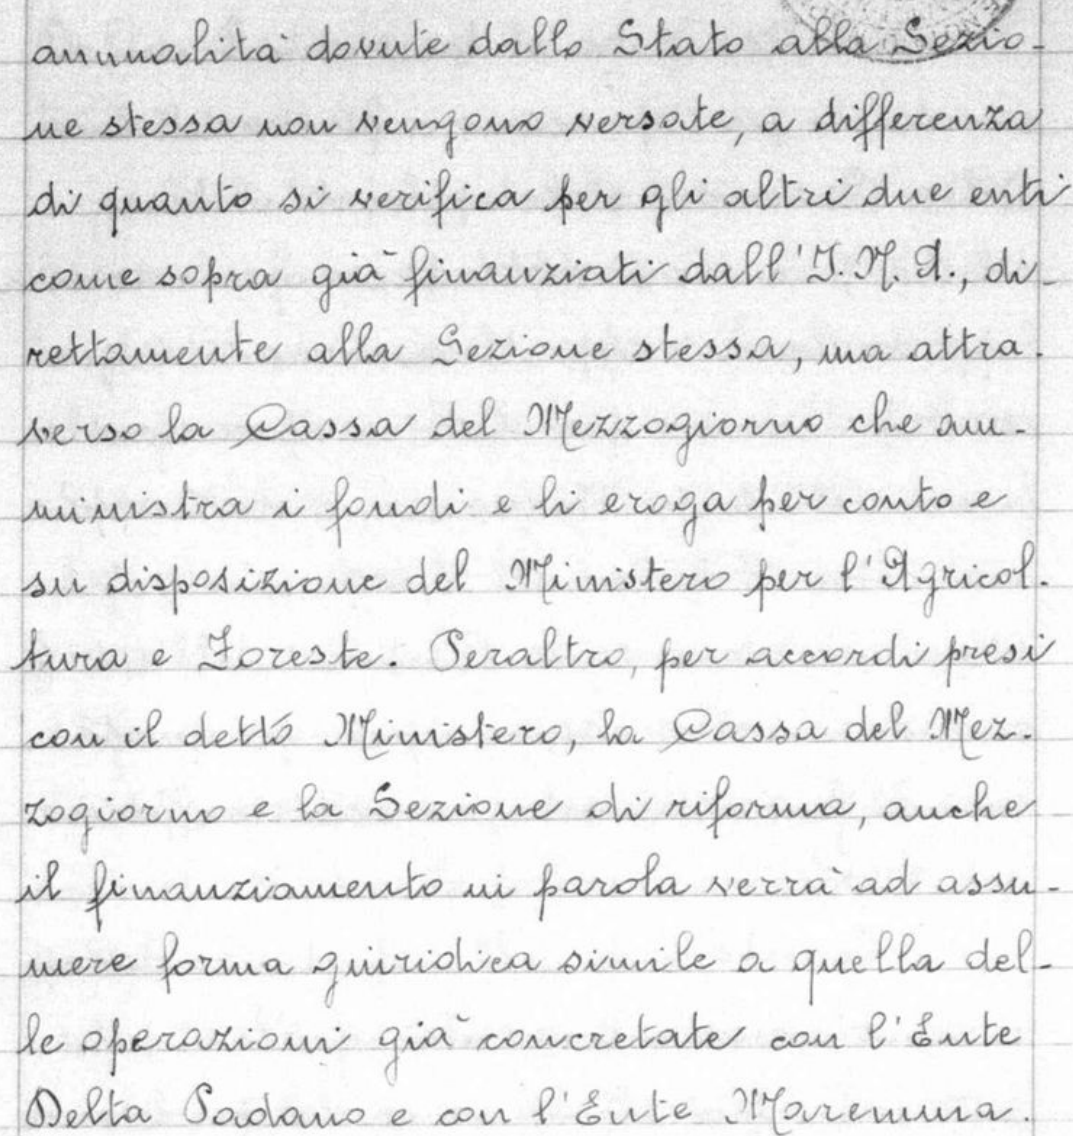 annualità dovute dallo Stato alla Sezio-
ne stessa non vengono versate, a differenza
di quanto si verifica per gli altri due enti
come sopra già finanziati dall'I.M.I., di-
rettamente alla Sezione stessa, ma attra-
verso la Cassa del Mezzogiorno che am-
ministra i fondi e li eroga per conto e
su disposizione del Ministero per l'Agricol-
tura e Foreste. Peraltro, per accordi presi
con il detto Ministero, la Cassa del Mez-
zogiorno e la Sezione di riforma, anche
il finanziamento in parola verrà ad assu-
mere forma giuridica simile a quella del-
le operazioni già concretate con l'Ente
Delta Padano e con l'Ente Maremma.